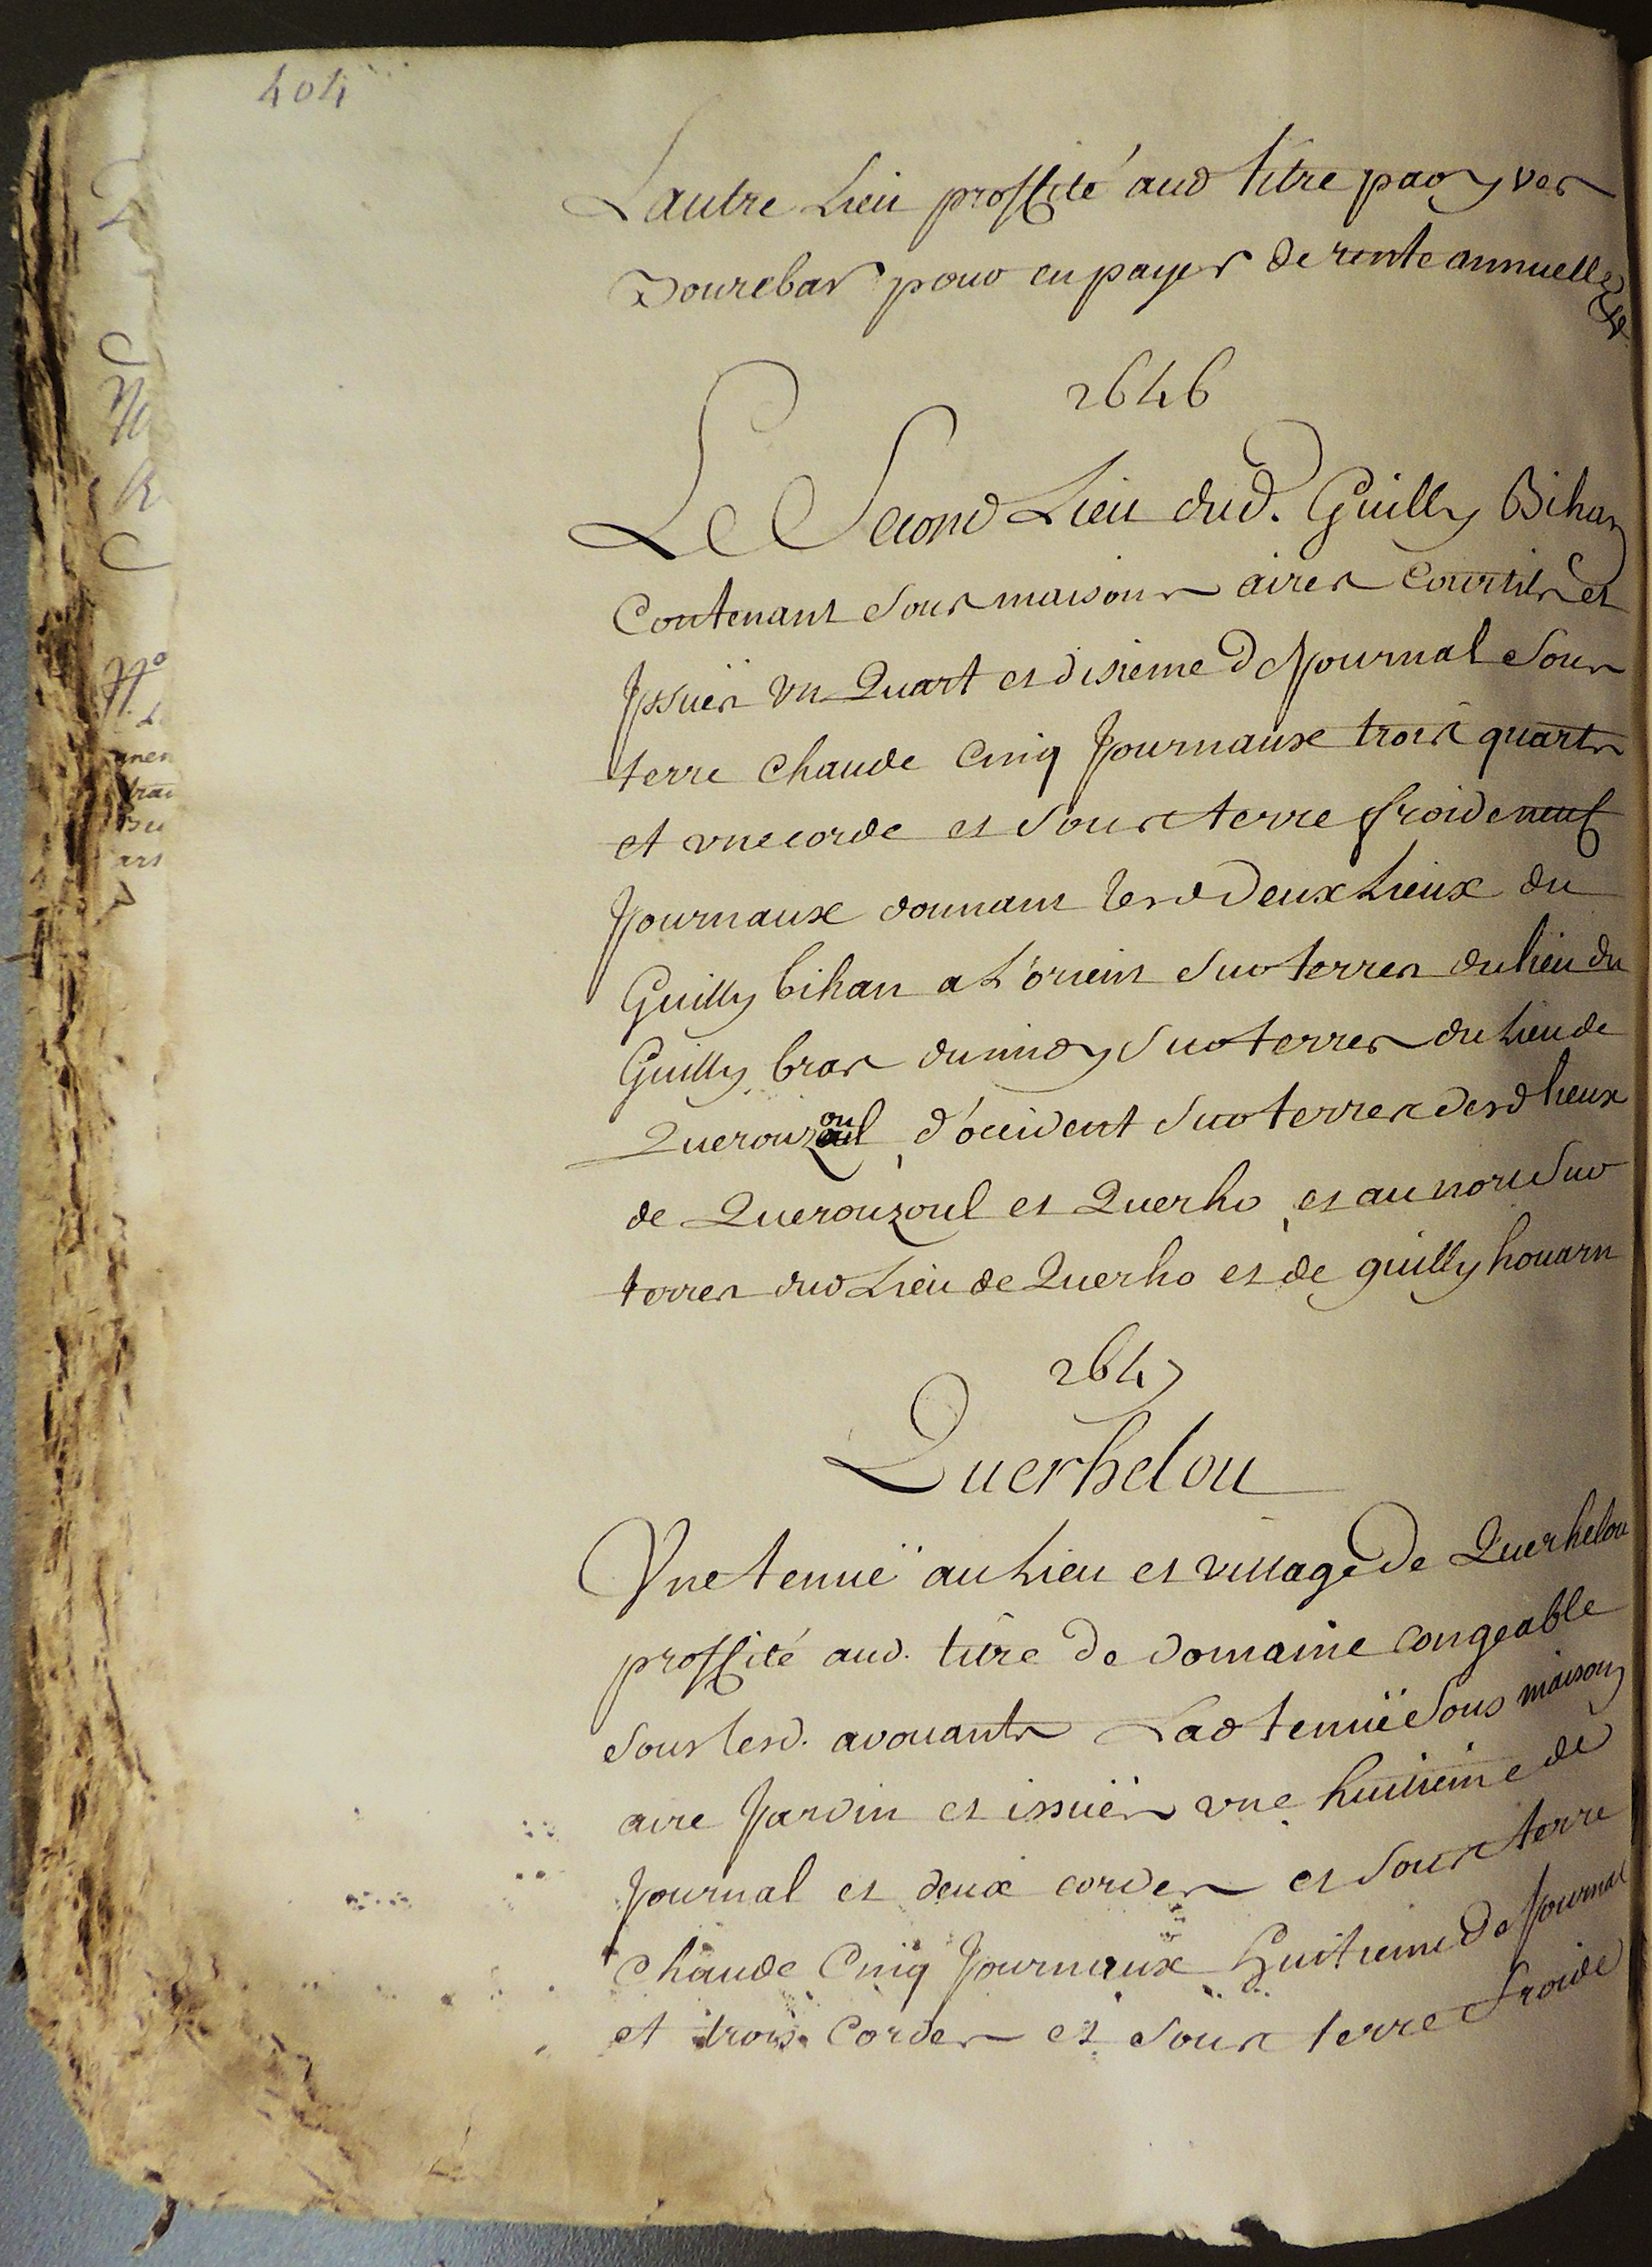 404
Lautre Lieu proffité aud titre par yves
Dourcbas pour en payer de rente annuelle
&
2646
Le Second Lieu dud. Guilly Bihan
Contenant sous maisons aires Courtils et
Jssuës vn Quart et disieme de Journal Sous
terre chaude Cinq Journaux trois quarts
et vne corde et sous terre froide neuf
Journaux donnant lesd Deux Lieux du
Guilly bihan a L'orient sur terres du lieu du
Guilly bras du midy sur terres du Lieu de
Querouzoul, d'occident sur terres desd lieux
de Querouzoul et Querho, et au nord sur
terres dud Lieu de Querho et de guilly houarn
2647
Querhelou
Vne tenuë au Lieu et village de Querhelou
proffité aud. titre de domaine congeable
sous lesd. avouants Lad tenuë sous maison
aire Jardin et issuës vne huitieme de
Journal et deux cordes et sous terre
chaude Cinq Journaux huitieme de Journal
et trois Cordes et sous terre froide